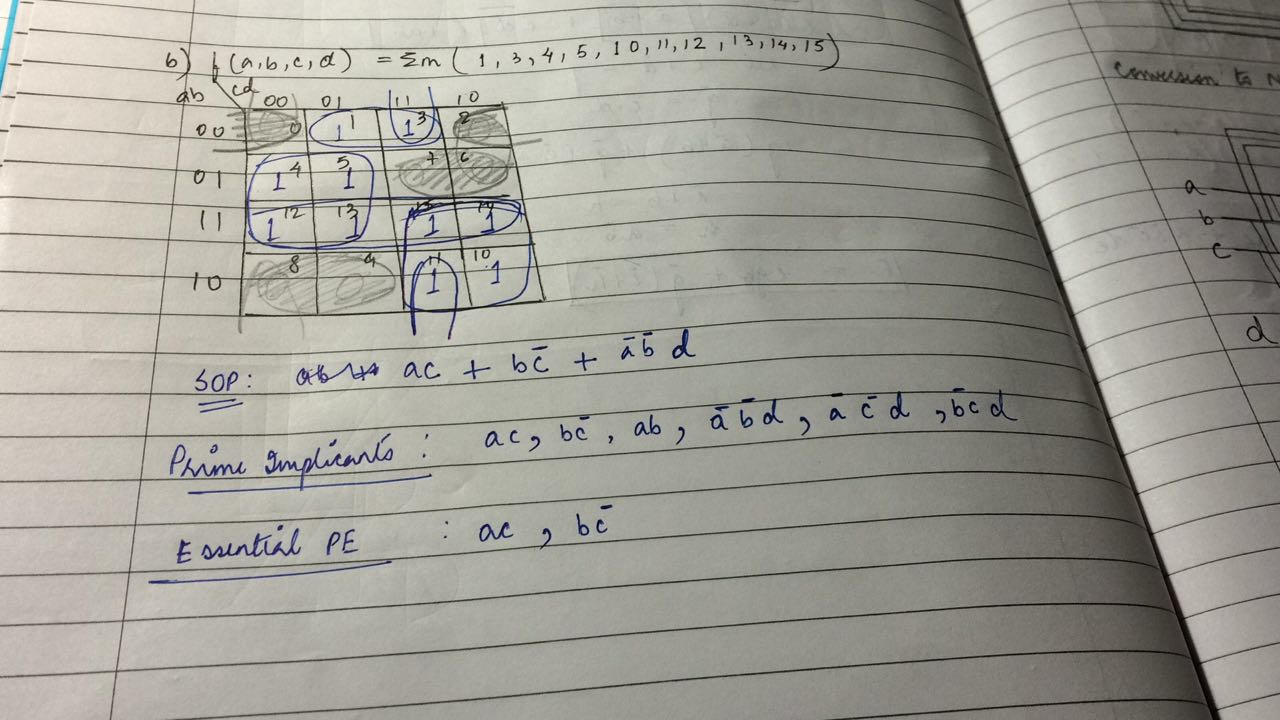 b) f(a,b,c,d) = Σm ( 1, 3, 4, 5, 10, 11, 12, 13, 14, 15)
ab cd
00 01 11 10
00 0 1 1 1 3 2
01 1 4 1 5 7 6
11 1 12 1 13 1 15 1 14
10 8 9 1 11 1 10
SOP: ac + bc̄ + āb̄d
Prime Implicants : ac, bc̄, ab, āb̄d, āc̄d, b̄cd
Essential PE : ac, bc̄
Conversion to
a
b
c
d